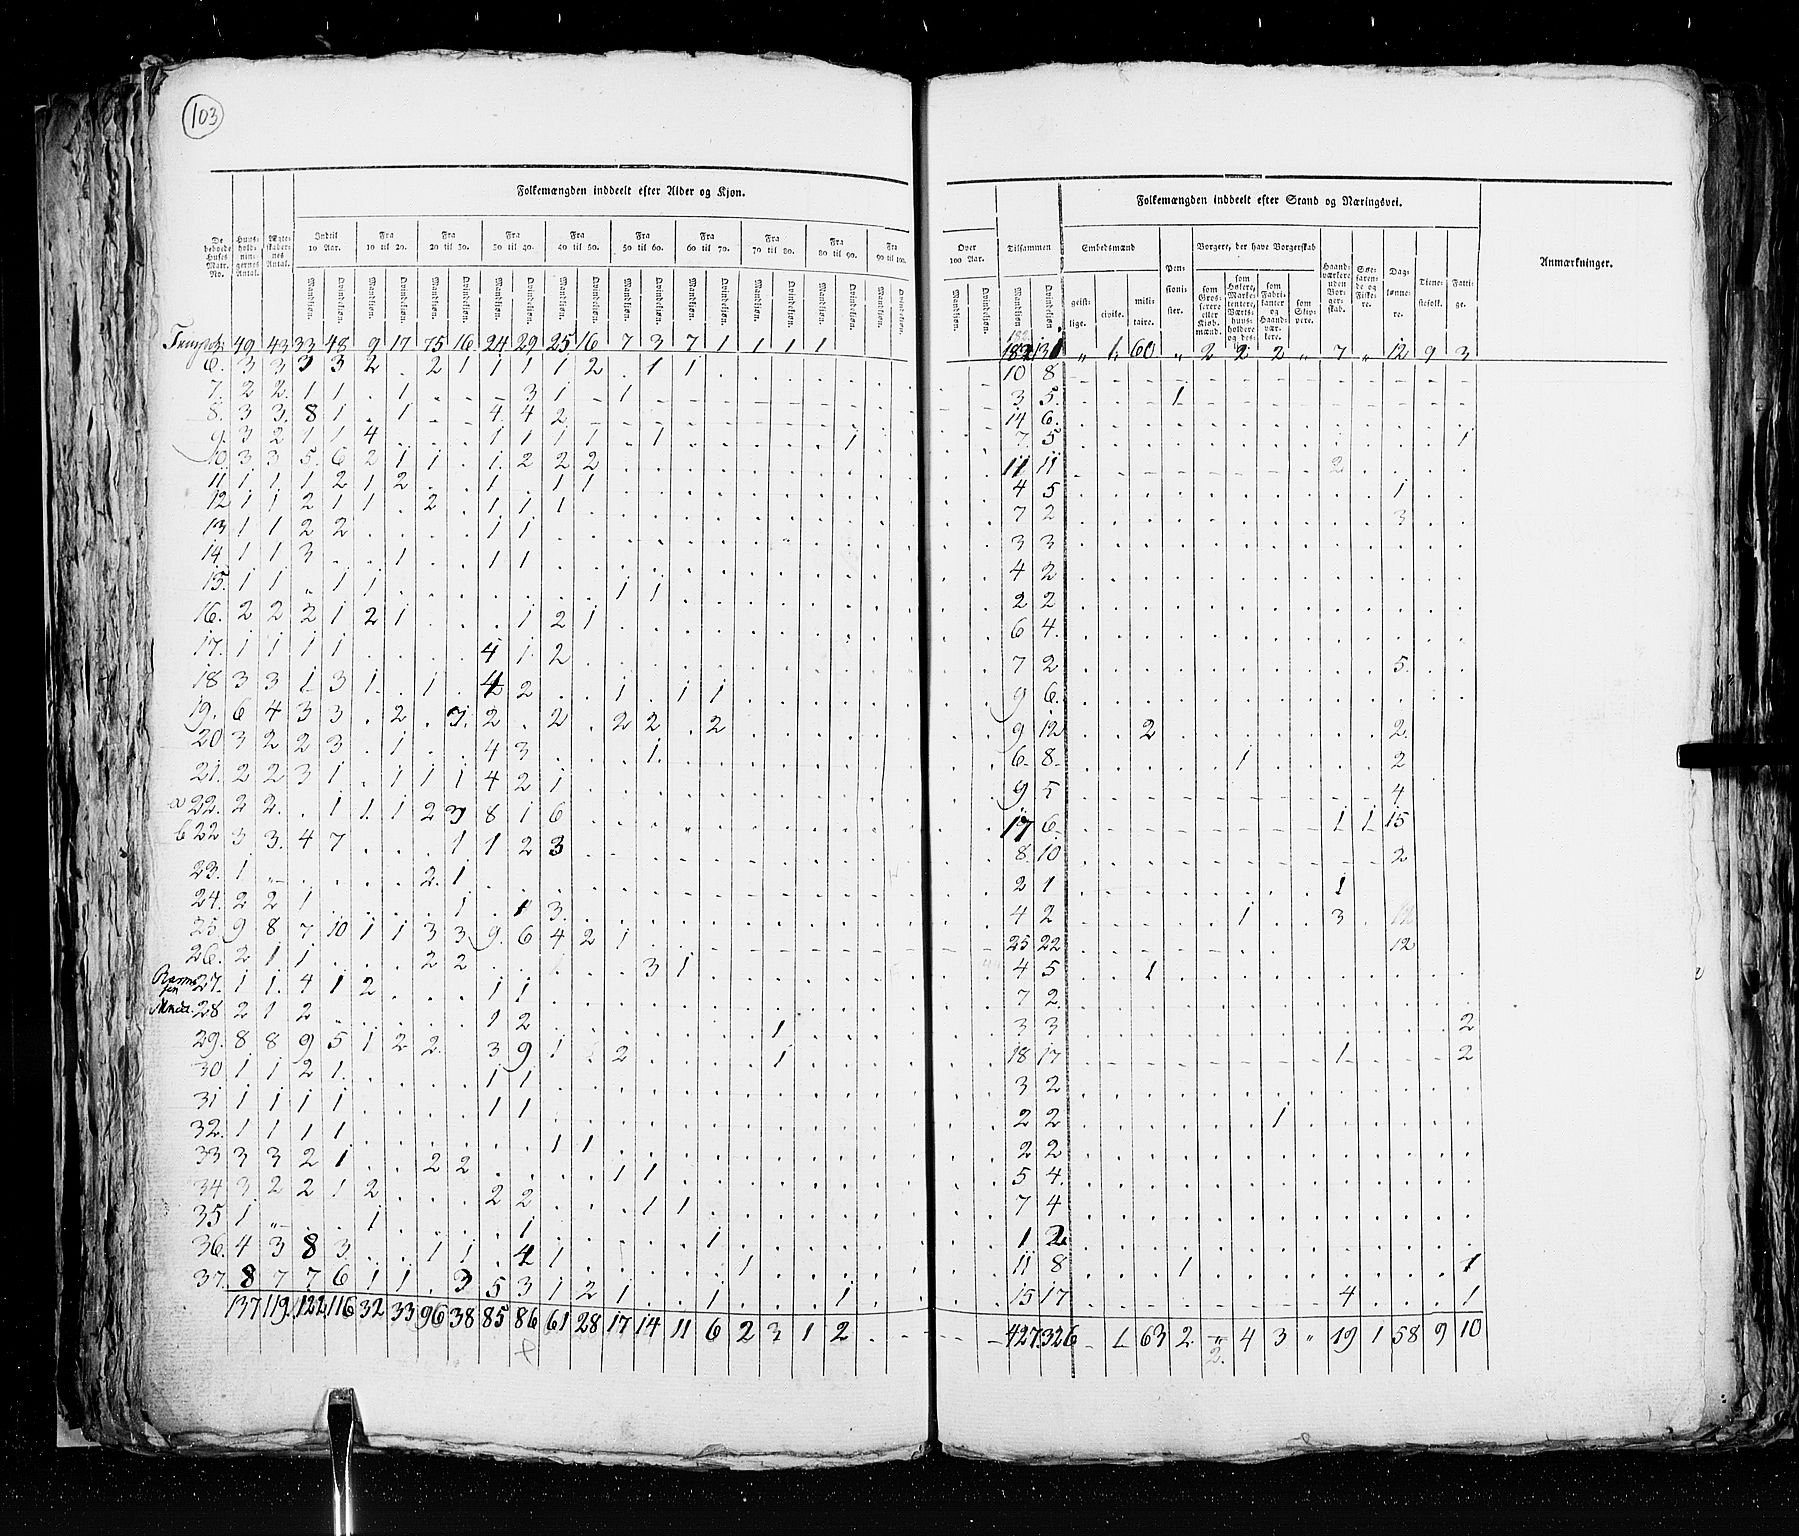 103
Folkemængden inddeelt efter Alder og Kjøn.
De beboede Huses Matr. No. | Huus-holdnin-gernes Antal. | Ægte-skaber-nes Antal. | Indtil 10 Aar. | Fra 10 til 20. | Fra 20 til 30. | Fra 30 til 40. | Fra 40 til 50. | Fra 50 til 60. | Fra 60 til 70. | Fra 70 til 80. | Fra 80 til 90. | Fra 90 til 100.
Mandkjøn. Qvindekjøn. Mandkjøn. Qvindekjøn. Mandkjøn. Qvindekjøn. Mandkjøn. Qvindekjøn. Mandkjøn. Qvindekjøn. Mandkjøn. Qvindekjøn. Mandkjøn. Qvindekjøn. Mandkjøn. Qvindekjøn. Mandkjøn. Qvindekjøn. Mandkjøn. Qvindekjøn.
49 43 33 48 9 17 75 16 24 29 25 16 7 3 7 1 1 1 1
6. 3 3 3 3 2 . 2 1 1 1 1 2 . 1 1
7. 2 2. 1 1 . 1 . - - 3 1 - 1
8. 3 3. 8 1 . 1 - - 4 4 2
9. 3 2 1 1 4 . . . 1 1 1 1 . 1 . . . . . 1
10. 3 3 5. 6 2 1 1 . 1. 2 2 2
11 1 1. 1 2 1 2 . . 1 . 1 1
12 1 1 2 1 1 . 2 . 1 1 1
13 1 1 2 2 . . . . 1 1
14 1 1 3 . . 1 . . 1 1
15. 1 1 . 1 1 . . . . . . . 1 1
16. 2 2 2 1 2 1 . . . 1 2 1
17. 1 1 1 1 . . . . 4 1. 2
18 3 3 1 3 1. . 1 . 4 2 . . 1 . 1 1
19. 6 4 3 3 . 2 . 3. 2 . 2 . 2 2 . 2
20 3 2 2 3 . 1 . . 4 3 . . . 1.
21. 2 2 3 1 . 1 1 1 4 2 1
a 22. 2 2. . 1 1. 1 2 3 8 1 6
b 22 3 3. 4 7 . . . 1 1 2 3
23. 1 - . . . . 2. 1
24. 2 2 1 . . . . 1 . 1 3.
25 9 8 7 10 1 1 3 3 9. 6 4 2 1
26. 2 1 1 . . . 2 2 . . . . . 3 1
27. 1 1. 4 1 2 . . . 1 1
28 2 1 2 . . . . . 1 2 . . . . . . . 1
29. 8 8 9 5 1 2 2. . 3 9 1 . 2 . . . . 1
30 1 1 2 1. . . . . 1 1
31 1 1 1 1 . . . . 1 1
32. 1 1 1 1 . . . . . . 1 1
33 3 3 2 1 . . 2 2 . . . . 1 1
34 3 2 2 1 2 . . . 2 2 . . . 1 1
35 1 „ . . 1 . . . . 1 . . . . . 1
36. 4 3 8 3 . . 1 1 . 4 1 . . . . . 1
37. 8 7 7 6 1 1 . 3 5 3 1 2 1 . . 1 . . . 1
137 119. 122 116 32 33 96 38 85 86 61 28 17 14 11 6 2 3 1 2
Over 100 Aar. | Tilsammen | Folkemængden inddeelt efter Stand og Næringsvei. | Anmærkninger.
Embedsmænd | Pen-sioni-ster. | Borgere, der have Borgerskab | Haand-værkere uden Bor-ger-skab. | Søe-farende og Fiske-re. | Dag-lønne-re. | Tiene-stefolk. | Fatti-ge.
Mandkjøn. Qvindekjøn. Mandkjøn Qvindekjøn. geist-lige. civile. mili-taire. som Gros-serere eller Kjøb-mænd. som Høkere, Marke-tentere, Værts-huus-holdere og des: som Fabri-kanter og Haand-vær-kere. som Skip-pere.
182 131 „ 1. 60 „ 2 2 2 „ 7 „ 12 9 3
10 8
3 5. . . . 1
14 6.
7 5 1
11 11 2
4 5 1
7 2 3
3 3
4 2
2 2
6 4.
7 2 5.
9 6.
9 12 2 2
6. 8 1 2
9 5 4
17 6. 1 1 15
8 10 2
2 1 1
4 2 1 3
25 22 12
4 5 1
7 2
3 3 2
18 17 1 2
3 2
2 2 1
2 2
5 4.
7 4
1 2.
11 8 1 1
15 17 4 1
427 326 - 1 63 2 „ 4 3 „ 19 1 58 9 10
2.